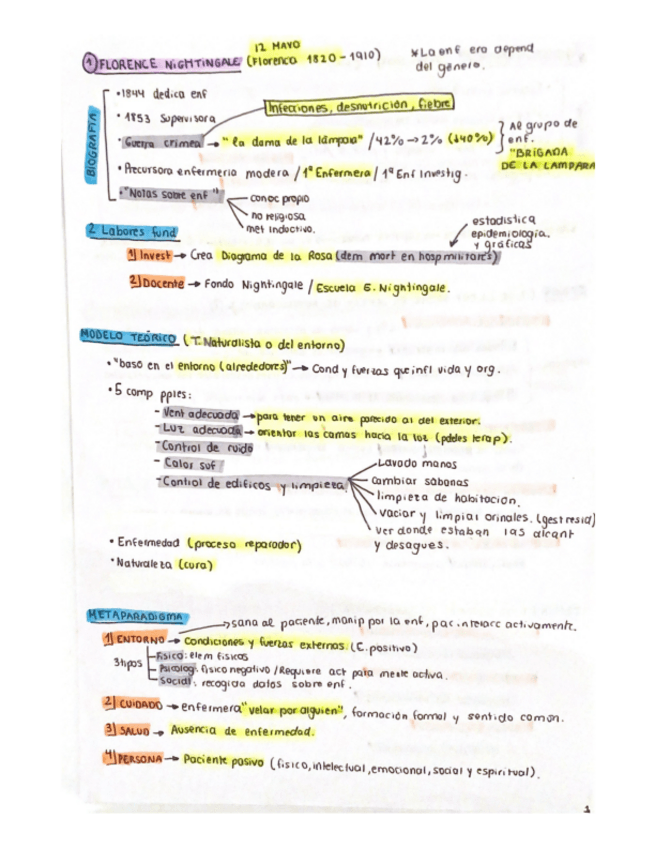 12 MAYO
1 FLORENCE NIGHTINGALE (Florencia 1820-1910)
*La enf era depend del género.
BIOGRAFÍA
•1844 dedica enf
Infecciones, desnutrición, fiebre
•1853 Supervisora
•Guerra crimea → "la dama de la lámpara" /42% → 2% (↓40%)
Al grupo de enf.
"BRIGADA DE LA LAMPARA
•Precursora enfermeria modera / 1ª Enfermera / 1ª Enf Investig.
•"Notas sobre enf"
conoc propio
no religiosa
met inductivo.
2 Labores fund
estadistica
epidemiologia.
y gráficas
1) Invest → Crea Diagrama de la Rosa (dem mort en hosp militares)
2) Docente → Fondo Nightingale / Escuela E. Nightingale.
MODELO TEÓRICO (T. Naturalista o del entorno)
•"baso en el entorno (alrededores)" → Cond y fuerzas que infl vida y org.
•5 comp pples:
- Vent adecuada → para tener un aire parecido al del exterior.
- Luz adecuada → orientar las camas hacia la luz (pdeles terap).
- Control de ruido
- Calor suf
- Control de edificos y limpieza
Lavado manos
cambiar sábanas
limpieza de habitación.
vaciar y limpiar orinales. (gest resid)
ver donde estaban las alcant
y desagues.
• Enfermedad (proceso reparador)
•Naturaleza (cura)
METAPARADIGMA
→ sana al paciente, manip por la enf, pac interacc activamente.
1) ENTORNO → Condiciones y fuerzas externas. (C. positivo)
3 tipos
Fisico: elem fisicos
Psicolog: fisico negativo / Requiere act para mente activa.
Social: recogida datos sobre enf.
2) CUIDADO → enfermera "velar por alguien", formación formal y sentido común.
3) SALUD → Ausencia de enfermedad.
4) PERSONA → Paciente pasivo (fisico, intelectual, emocional, social y espiritual).
1